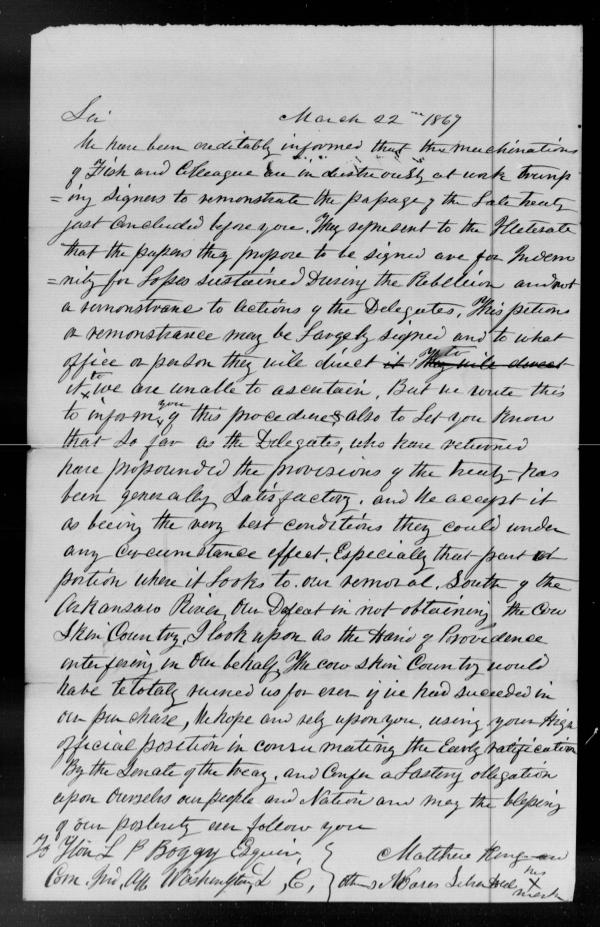 Sir March 22 1867
We have been creditably informed that the machinations
of Fish and Colleague are industreously at work trump
=ing signers to remonstrate the passage of the Late treaty
just Concluded before you. They represent to the Illeterate
that the papers they propose to be signed are for Indem
=nity for Losses sustained During the Rebellion and not
a remonstrane to actions of the Delegates, This petions
or remonstrance may be Largely signed and to what
office or person they will direct it They will direct
it to we are unable to ascertain, But we write this
to inform you of this procedure & also to Let you Know
that So far as the Delegates, who have returned
have propounded the provisions of the treaty has
been generally Satisfactory. and We accept it
as beeing the very best conditions they could under
any Circumstance effect. Especially that part or
portion where it Looks to our removal, South of the
Arkansaw River Our Defeat in not obtaining the Cow
Skin Country, I look upon as the Hand of Providence
interfering in Our behalf, The cow skin Country would
have totaly ruened us for ever if we had succeded in
our purchase, We hope and rely upon you, using your High
official position in consumating the Early ratification
By the Senate of the treay, and Confer a Lasting obligation
upon Ourselves our people and Nation and may the blessing
of our posterity ever follow you
To Hon L P Boggy Esquire,
Com. Ind, Aff. Washington, D, C, Matthew King and
others Moses his X mark